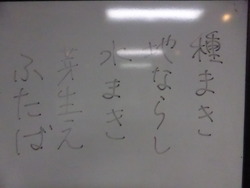 種まき
地ならし
水まき
芽生え
ふたば